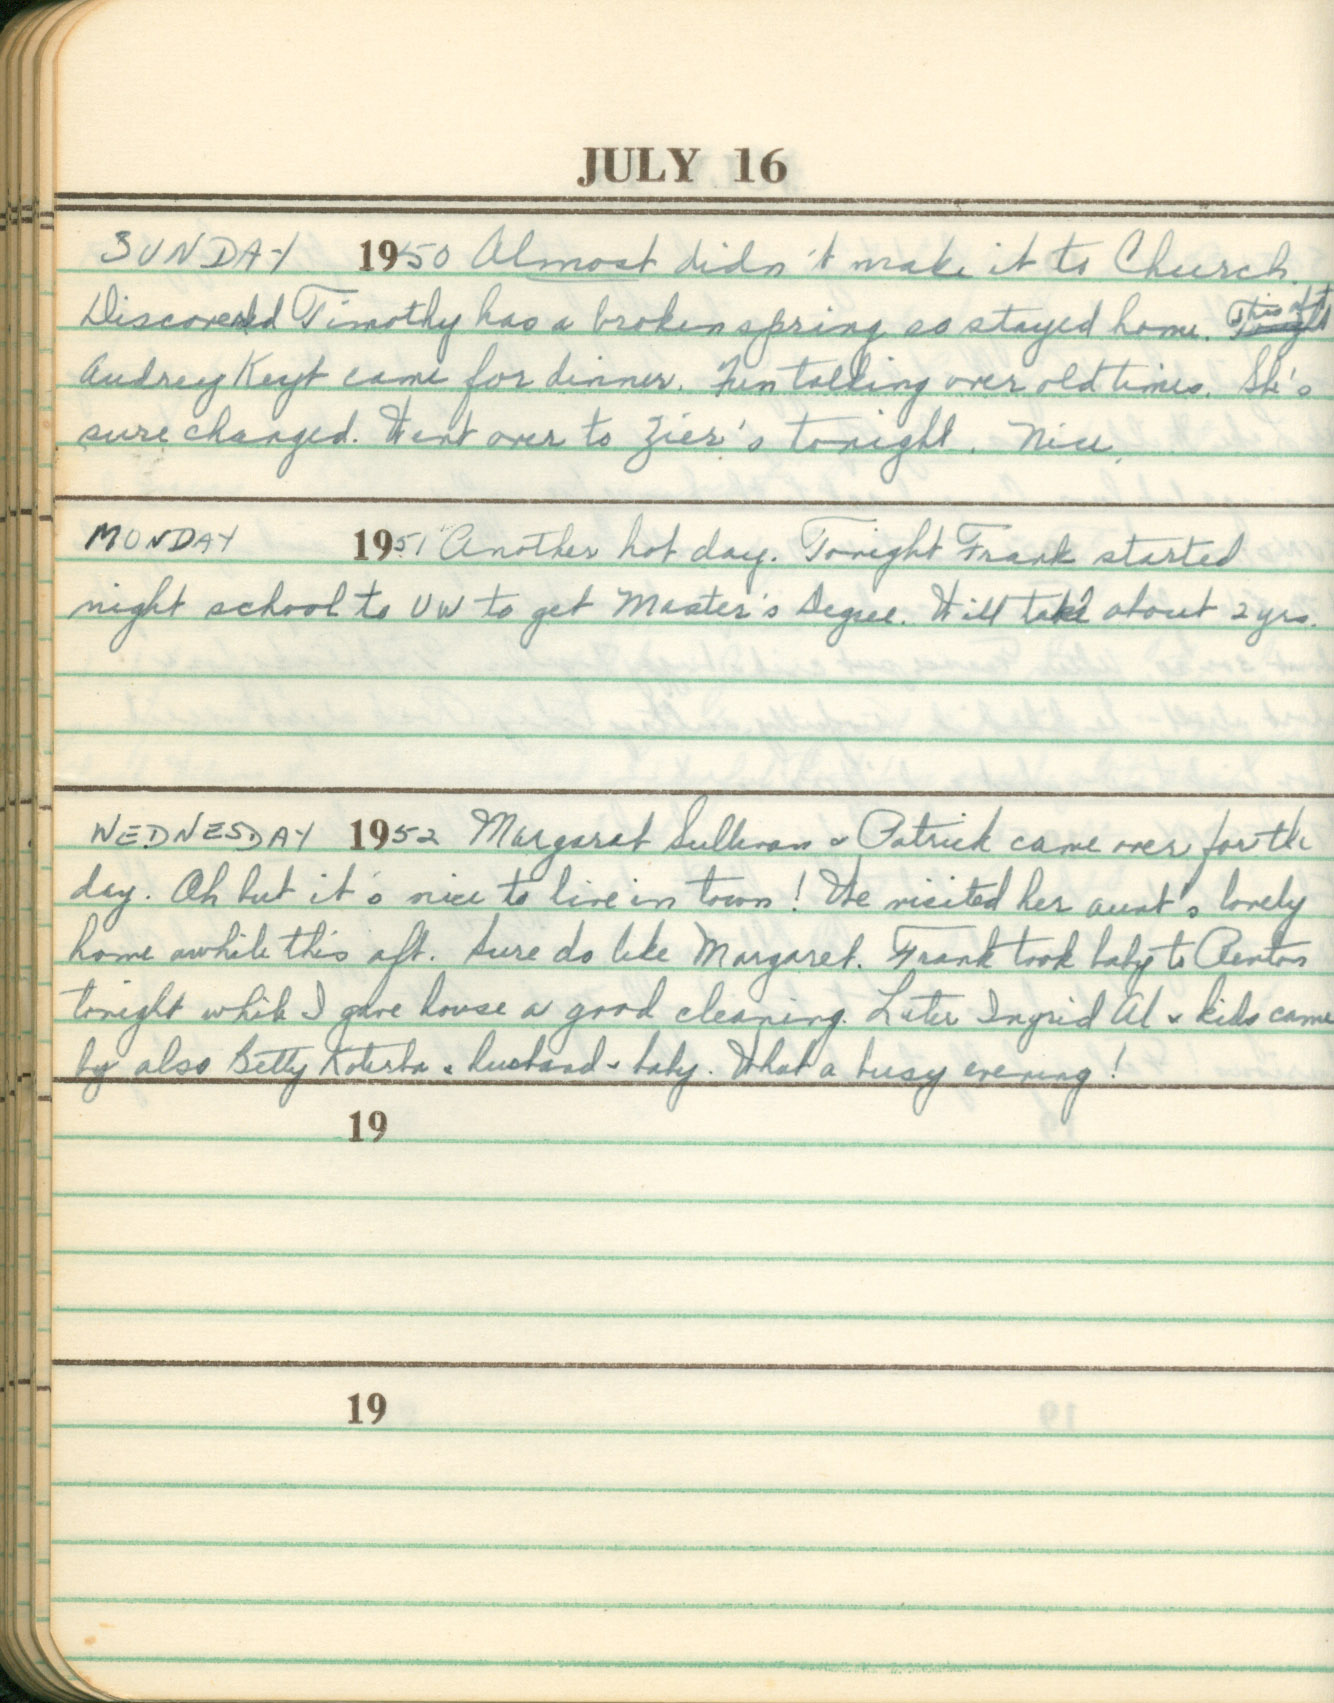 JULY 16
SUNDAY 1950 Almost didn't make it to Church.
Discovered Timothy has a broken spring so stayed home. This aft
Audrey Keyt came for dinner. Fun talking over old times. She's
sure changed. Went over to Zier's tonight. Nice.
MONDAY 1951 Another hot day. Tonight Frank started
night school to UW to get Master's Degree. Will take about 2 yrs.
WEDNESDAY 1952 Margaret Sullivan & Patrick came over for the
day. Oh but it's nice to live in town! We visited her aunt's lovely
home awhile this aft. Sure do like Margaret. Frank took baby to Renton
tonight while I gave house a good cleaning. Later Ingrid Al & kids came
by also Betty Koterba & husband & baby. What a busy evening!
19
19